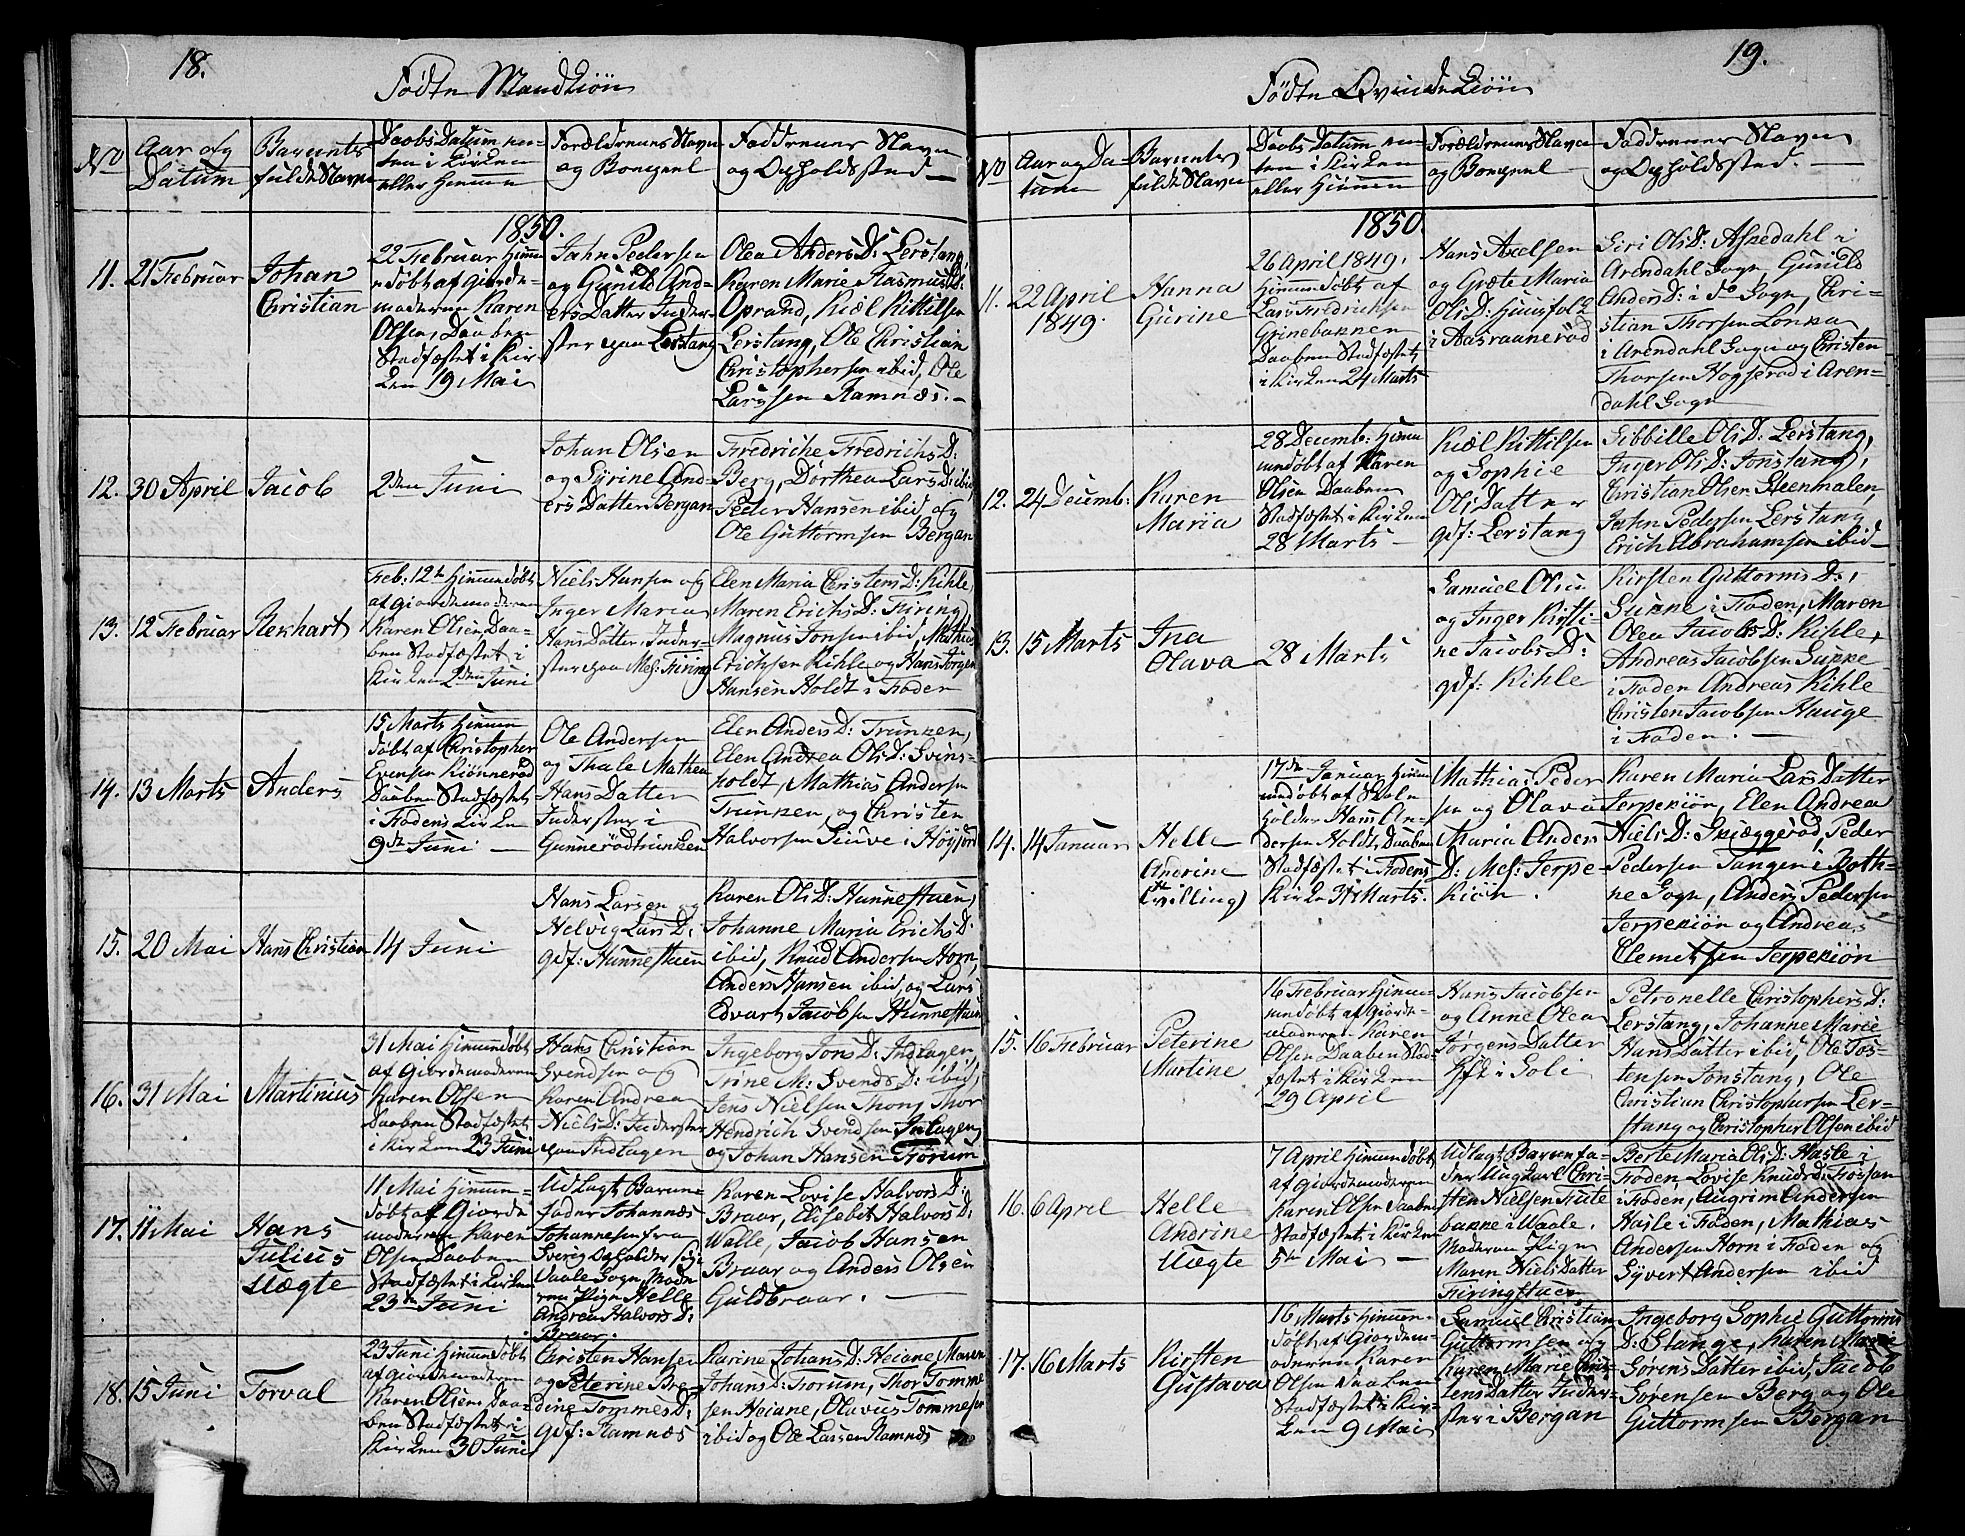 18.
Fødte Mandkiøn
No
Aar og
Datum
Barnets
fulde Navn
Daabs Datum en-
ten i Kirken
eller Hiemme
Forældrenes Navn
og Bopæl
Faddernes Navn
og Opholdssted
1850.
11.
21 Februar
Johan
Christian
22 Februar Hjem-
døbt af Giorde-
moderen Karen
Olsen, Daaben
Stadfæstet i Kir-
ken 19 Mai
Jahn Pedersen
og Gunild And-
ers Datter Inder-
ster paa Lerstang
Olea Anders D: Lerstang,
Karen Marie Rasmus D:
Oprand, Kiøl Kittilsen
Lerstang, Ole Christian
Christophersen ibid, Ole
Larssen Ramnæs.
12.
30 April
Jacob
2den Juni
Johan Olsen
og Syrine And-
ers Datter Bergan
Fredriche Fredrichs D:
Berg, Dorthea Lars D: ibid
Peder Hansen ibid og
Ole Guttormsen Bergan
13.
12 Februar
Rekhart
Feb: 12te Hiemmedøbt
af Giordemoderen
Karen Olsen, Daa-
ben Stadfæstet i
Kirken 2den Juni
Niels Hansen og
Inger Maria
Hans Datter, Inder-
ster paa Mel: Firing
Elen Maria Christens D: Kihle,
Maren Erichs D: Firing,
Magnus Jonsen ibid, Mathias
Erichsen Kihle og Hans Jørgen
Hansen Holdt i Foden
14.
13 Marts
Anders
15 Marts Hiemme
døbt af Christopher
Evensen Kiønnerød
Daaben Stadfæstet
i Fodens Kirke
9de Juni
Ole Andersen
og Thale Mathea
Hans Datter
Inderster i
Gunnerødtrunken
Elen Anders D: Trunken,
Elen Andrea Ols D: Svins-
holdt, Mathias Andersen
Trunken, og Christen
Halvorsen Siuve i Høyjord
15.
20 Mai
Hans Christian
14 Juni
Hans Larsen og
Helvig Lars D:
gdf: Hunnestuen
Karen Ols D: Hunnestuen,
Johanne Maria Erichs D:
ibid, Knud Andersen Horn,
Anders Hansen ibid, og Lars
Edvart Jacobsen Hunnestuen
16.
31 Mai
Martinius
31 Mai Hiemmedøbt
af Giordemoderen
Karen Olsen
Daaben Stadfæstet
i Kirken 23 Juni
Hans Christian
Svendsen og
Karen Andrea
Niels D: Inderster
paa Indlagen
Ingeborg Jons D: Indlagen,
Trine M: Svends D: ibid,
Jens Nielsen Thon, Thor
Hendrich Svendsen Inlagen,
og Johan Hansen Frorum
17.
11 Mai
Hans
Julius
Uægte
11 Mai Hiemme-
døbt af Giorde
moderen Karen
Olsen Daaben
Stadfæstet i Kirken
23de Juni
Udlagt Barne-
fader Johannes
Johannesen fra
Sverig Opholder sig i
Vaale Sogn, Mode-
ren Pigen Helle
Andrea Halvors D:
Braar.
Karen Lovise Halvors D:
Braar, Elisebet Halvors D:
Walle, Jacob Hansen
Braar og Anders Olsen
Guldbraar.
18.
15 Juni
Torval
23 Juni Hiemmedøbt
af Giordemoderen
Karen Olsen Daa-
ben Stadfæstet i
Kirken 30 Juni
Christen Hansen
og Peterine Bre-
dine Tommes D:
gdf: Ramnæs
Karine Johans D: Heiane, Maren
Johans D: Frorum, Thor Tomme
sen Heiane, Olavus Tommesen
ibid og Ole Larssen Ramnæs
19.
Fødte Qvindekiøn
No
Aar og Da-
tum
Barnets
fulde Navn
Daabs Datum en-
ten i Kirken
eller Hiemme
Forældrenes Navn
og Bopæl
Faddernes Navn
og Opholdssted.
1850.
11.
22 April
1849.
Hanna
Gurine
26 April 1849.
Hiemmedøbt af
Lars Fredrichsen
Grinebakken
Daaben Stadfæstet
i Kirken 24 Marts
Hans Axelsen
og Grete Maria
Ols D: Huusfolk
i Aasraanerød
Siri Ols D: Aspedahl i
Arendahl Sogn, Gunild
Anders D: i do Sogn, Chri-
stian Thorsen Lonka
i Arendahl Sogn og Christen
Thorsen Hogserød i Aren-
dahl Sogn
12.
24 Decemb:
Karen
Maria
28 Decemb: Hiem-
medøbt af Karen
Olsen Daaben
Stadfæstet i Kirken
28 Marts
Kiøl Kittilsen
og Sophie
Ols Datter
gdf: Lerstang
Sibbille Ols D: Lerstang,
Inger Ols D: Jonstang,
Christian Olsen Steenmalen,
Jahn Pedersen Lerstang
Erich Abrahamsen ibid
13.
15 Marts
Ina
Olava
28 Marts
Samuel Olsen
og Inger Kirsti-
ne Jacobs D:
gdf: Kihle
Kirsten Guttorms D:,
Sukke i Foden, Maren
Olea Jacobs D: Kihle,
Andreas Jacobsen Sukke
i Foden Andreas Kihle
Christen Jacobsen Hauge
i Foden.
14.
14 Januar
Helle
Andrine
(Tvilling)
17de Januar Hiem
medøbt af Skole
holder Hans An-
dersen Holdt, Daaben
Stadfæstet i Fodens
Kirke 31te Marts.
Mathias Peder
sen og Olava
Maria Anders
D: Mel: Jerpe-
kiøn.
Karen Maria Lars Datter
Jerpekiøn, Elen Andrea
Niels D: Skiæggerød, Peder
Pedersen Tangen i Both-
ne Sogn, Anders Pedersen
Jerpekiøn og Andreas
Clemetsen Jerpekiøn
15.
16 Februar
Peterine
Martine
16 Februar Hiem-
medøbt af Giorde-
moderen Karen
Olsen Daaben Stad-
fæstet i Kirken
29 April
Hans Jacobsen
og Anne Olea
Jørgens Datter
Hft i Soli
Petronelle Christophers D:
Lerstang, Johanne Marie
Hans Datter ibid, Ole Tos-
tensen Jonstang, Ole
Christian Christophersen Ler-
stang og Christopher Olsen ibid
16.
6 April
Helle
Andrine
Uægte
7 April Hiemmedøbt
af Giordemoderen
Karen Olsen Daaben
Stadfæstet i Kirken
5te Mai
Udlagt Barnefa-
der Ungkarl Chri-
sten Nielsen Knate
bakke i Waale.
Moderen Pigen
Maren Niels Datter
Firingstuen
Berte Maria Ols D: Hasle i
Foden, Lovise Knuds D: Fossan
i Foden, Augrim Andersen
Hasle i Foden, Mathias
Andersen Horn i Foden og
Syvert Andersen ibid
17.
16 Marts
Kirsten
Gustava
16 Marts Hiemme-
døbt af Giordem-
oderen Karen
Olsen Daaben
Stadfæstet i Kir-
ken 9 Mai
Samuel Christian
Guttormsen og
Karen Marie Chris-
tens Datter Inder-
ster i Bergan
Ingeborg Sophie Guttorms
D: Stange, Karen Marie
Sørens Datter ibid, Jacob
Sørensen Berg og Ole
Guttormsen Bergan